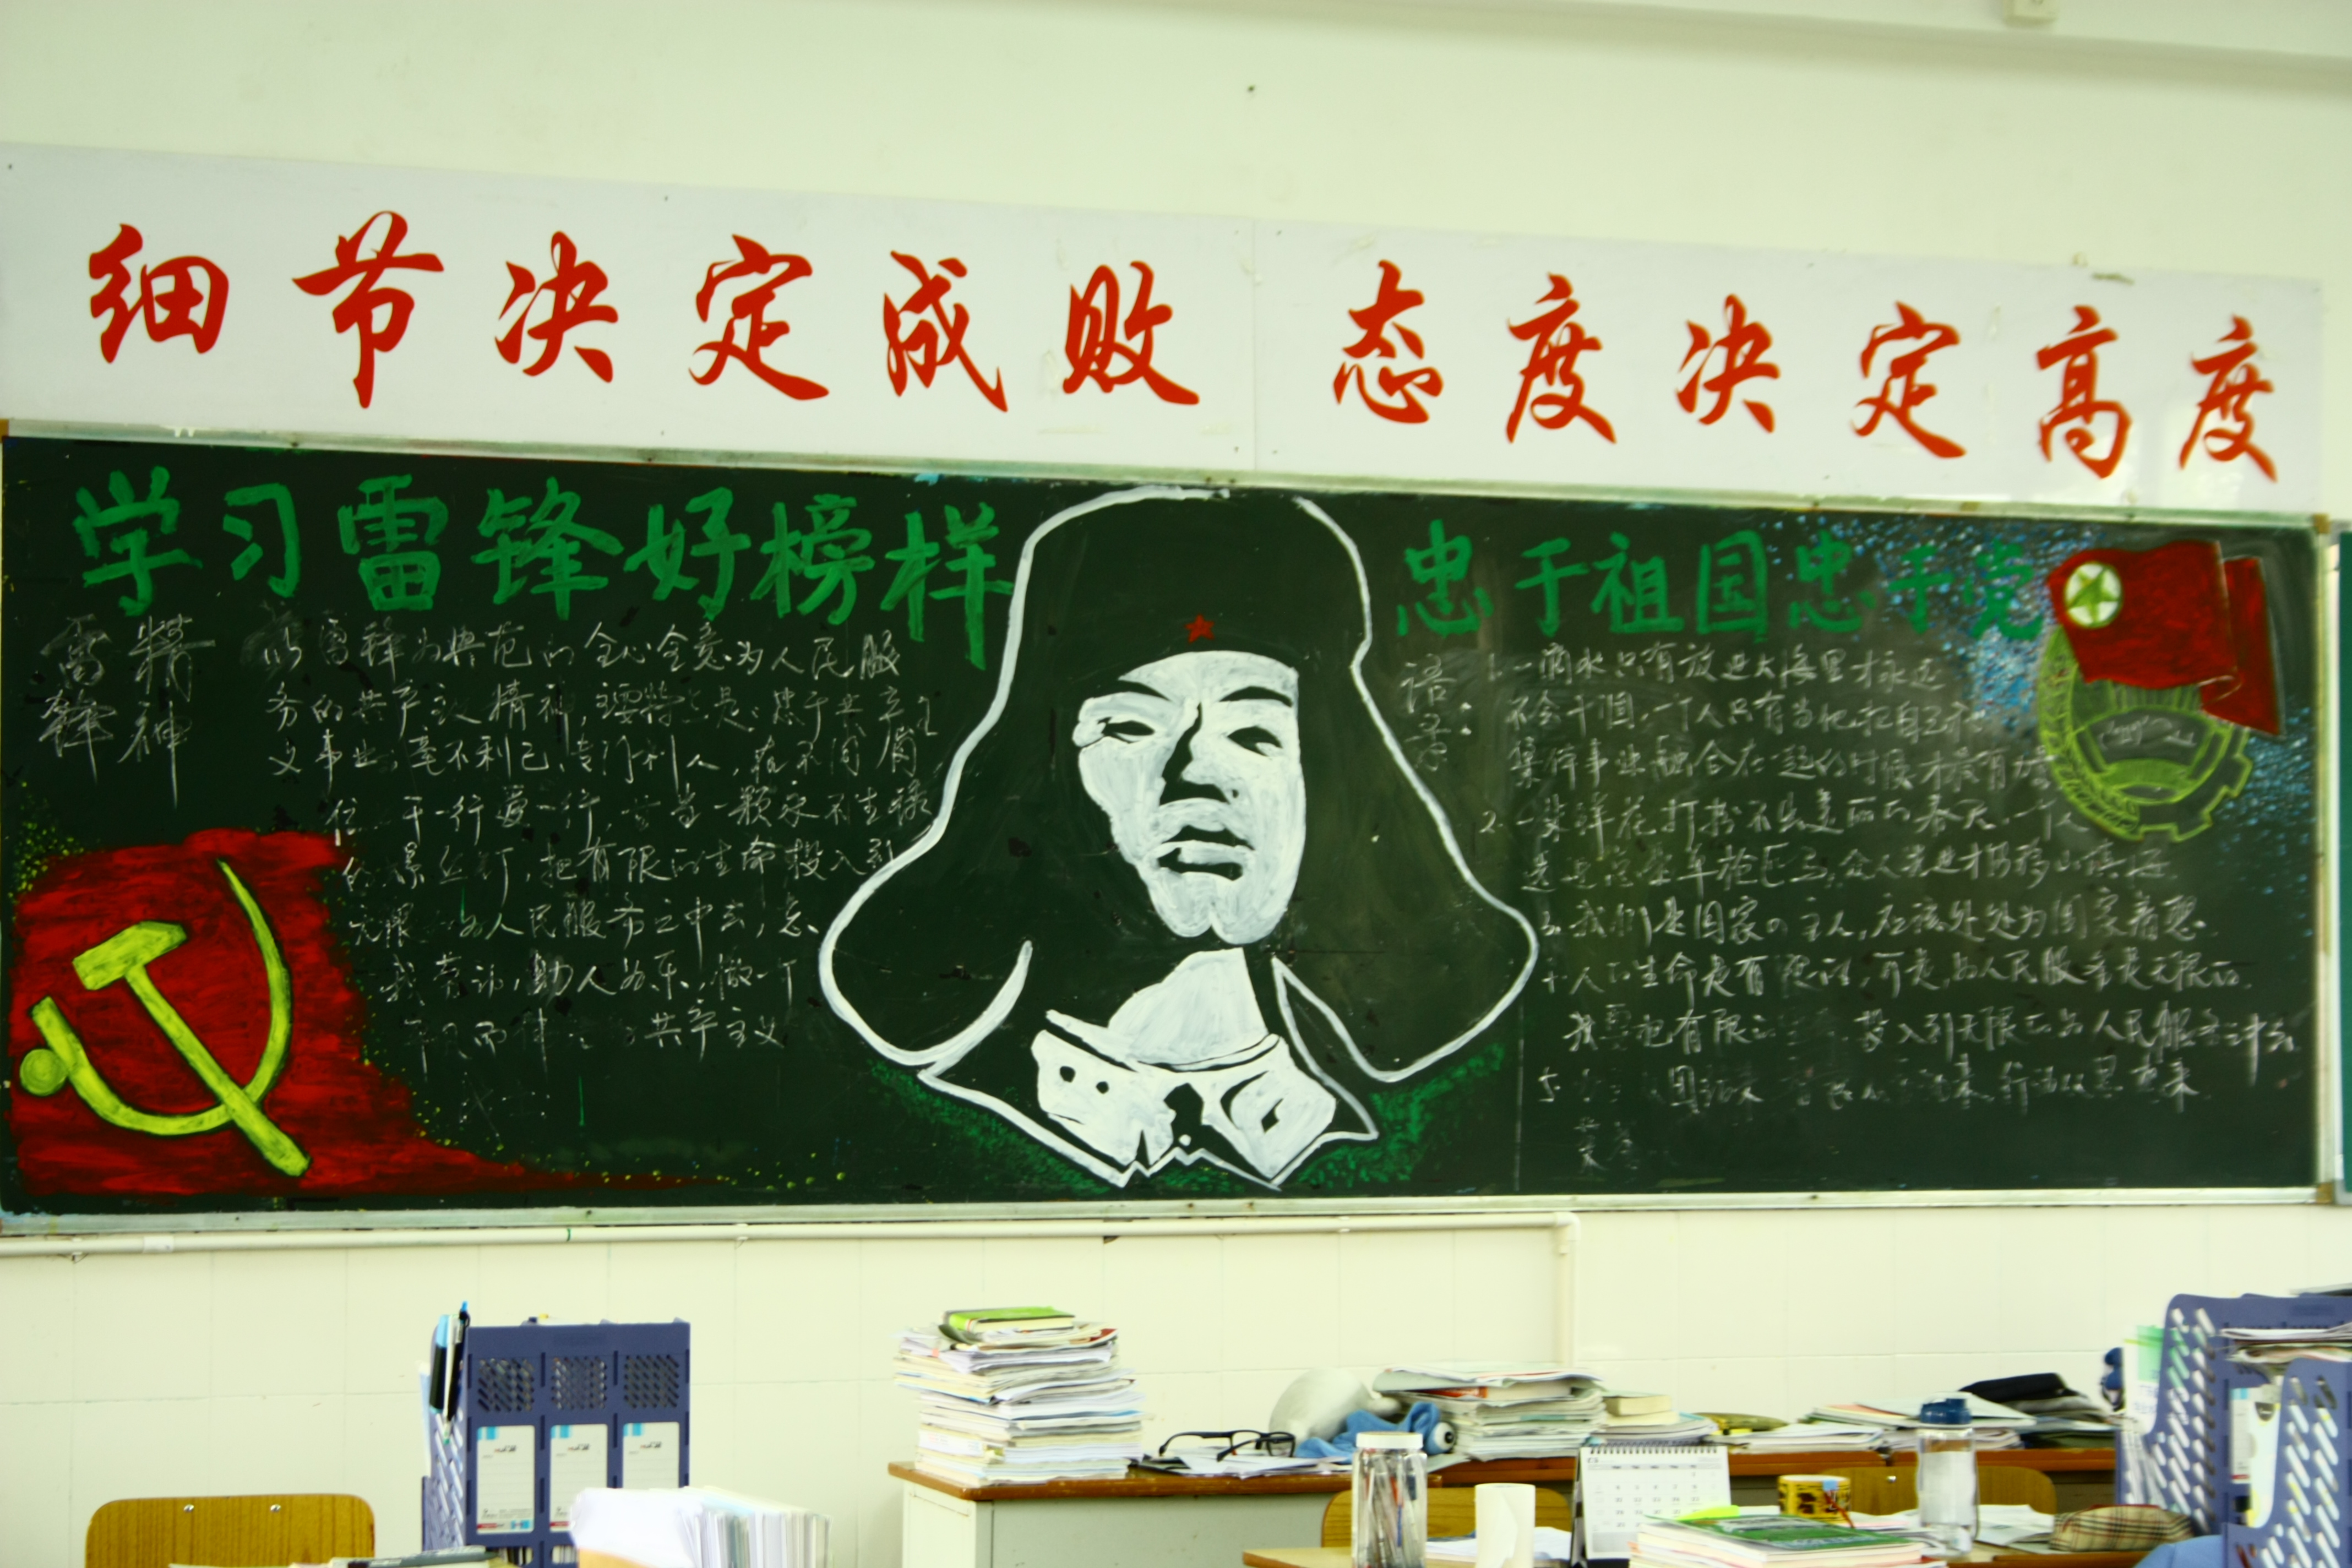 细节决定成败 态度决定高度
学习雷锋好榜样
雷锋
精神
以雷锋为典范的全心全意为人民服
务的共产主义精神，主要特点是：忠于共产主
义事业，毫不利己，专门利人，在不同岗
位，干一行爱一行，甘当一颗永不生锈
的螺丝钉，把有限的生命投入到
无限的为人民服务之中去，忘
我劳动，助人为乐，做一个
平凡而伟大的共产主义
战士
忠于祖国忠于党
语录：
1.一滴水只有放进大海里才永远
不会干涸，一个人只有当他把自己和
集体事业融合在一起的时候才能有力量
2.一朵鲜花打扮不出美丽的春天，一个人
先进总是单枪匹马，众人先进才能移山填海
3.我们是国家的主人，应该处处为国家着想
人的生命是有限的，可是，为人民服务是无限的，
我要把有限的 投入到无限的为人民服务之中去
5.